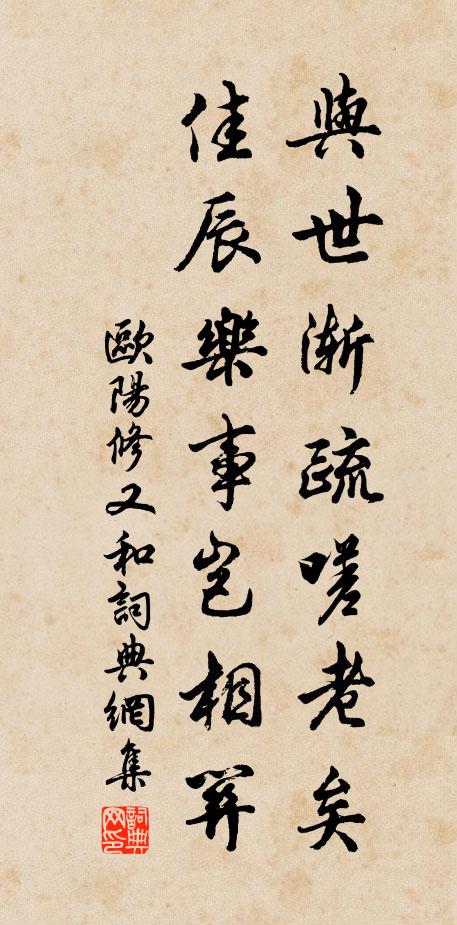 與世漸疏嗟老矣
佳辰樂事豈相關
歐陽修又和詞典網集
詞典网印